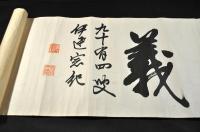 義
九十有四叟
伊達宗紀